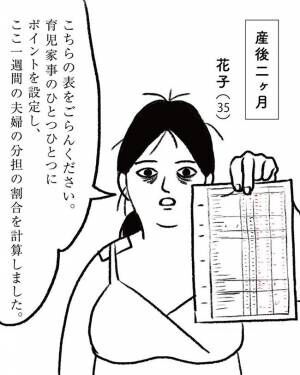 産後二ヶ月
花子（35）
こちらの表をごらんください。
育児家事のひとつひとつに
ポイントを設定し、
ここ一週間の夫婦の分担の割合を計算しました。